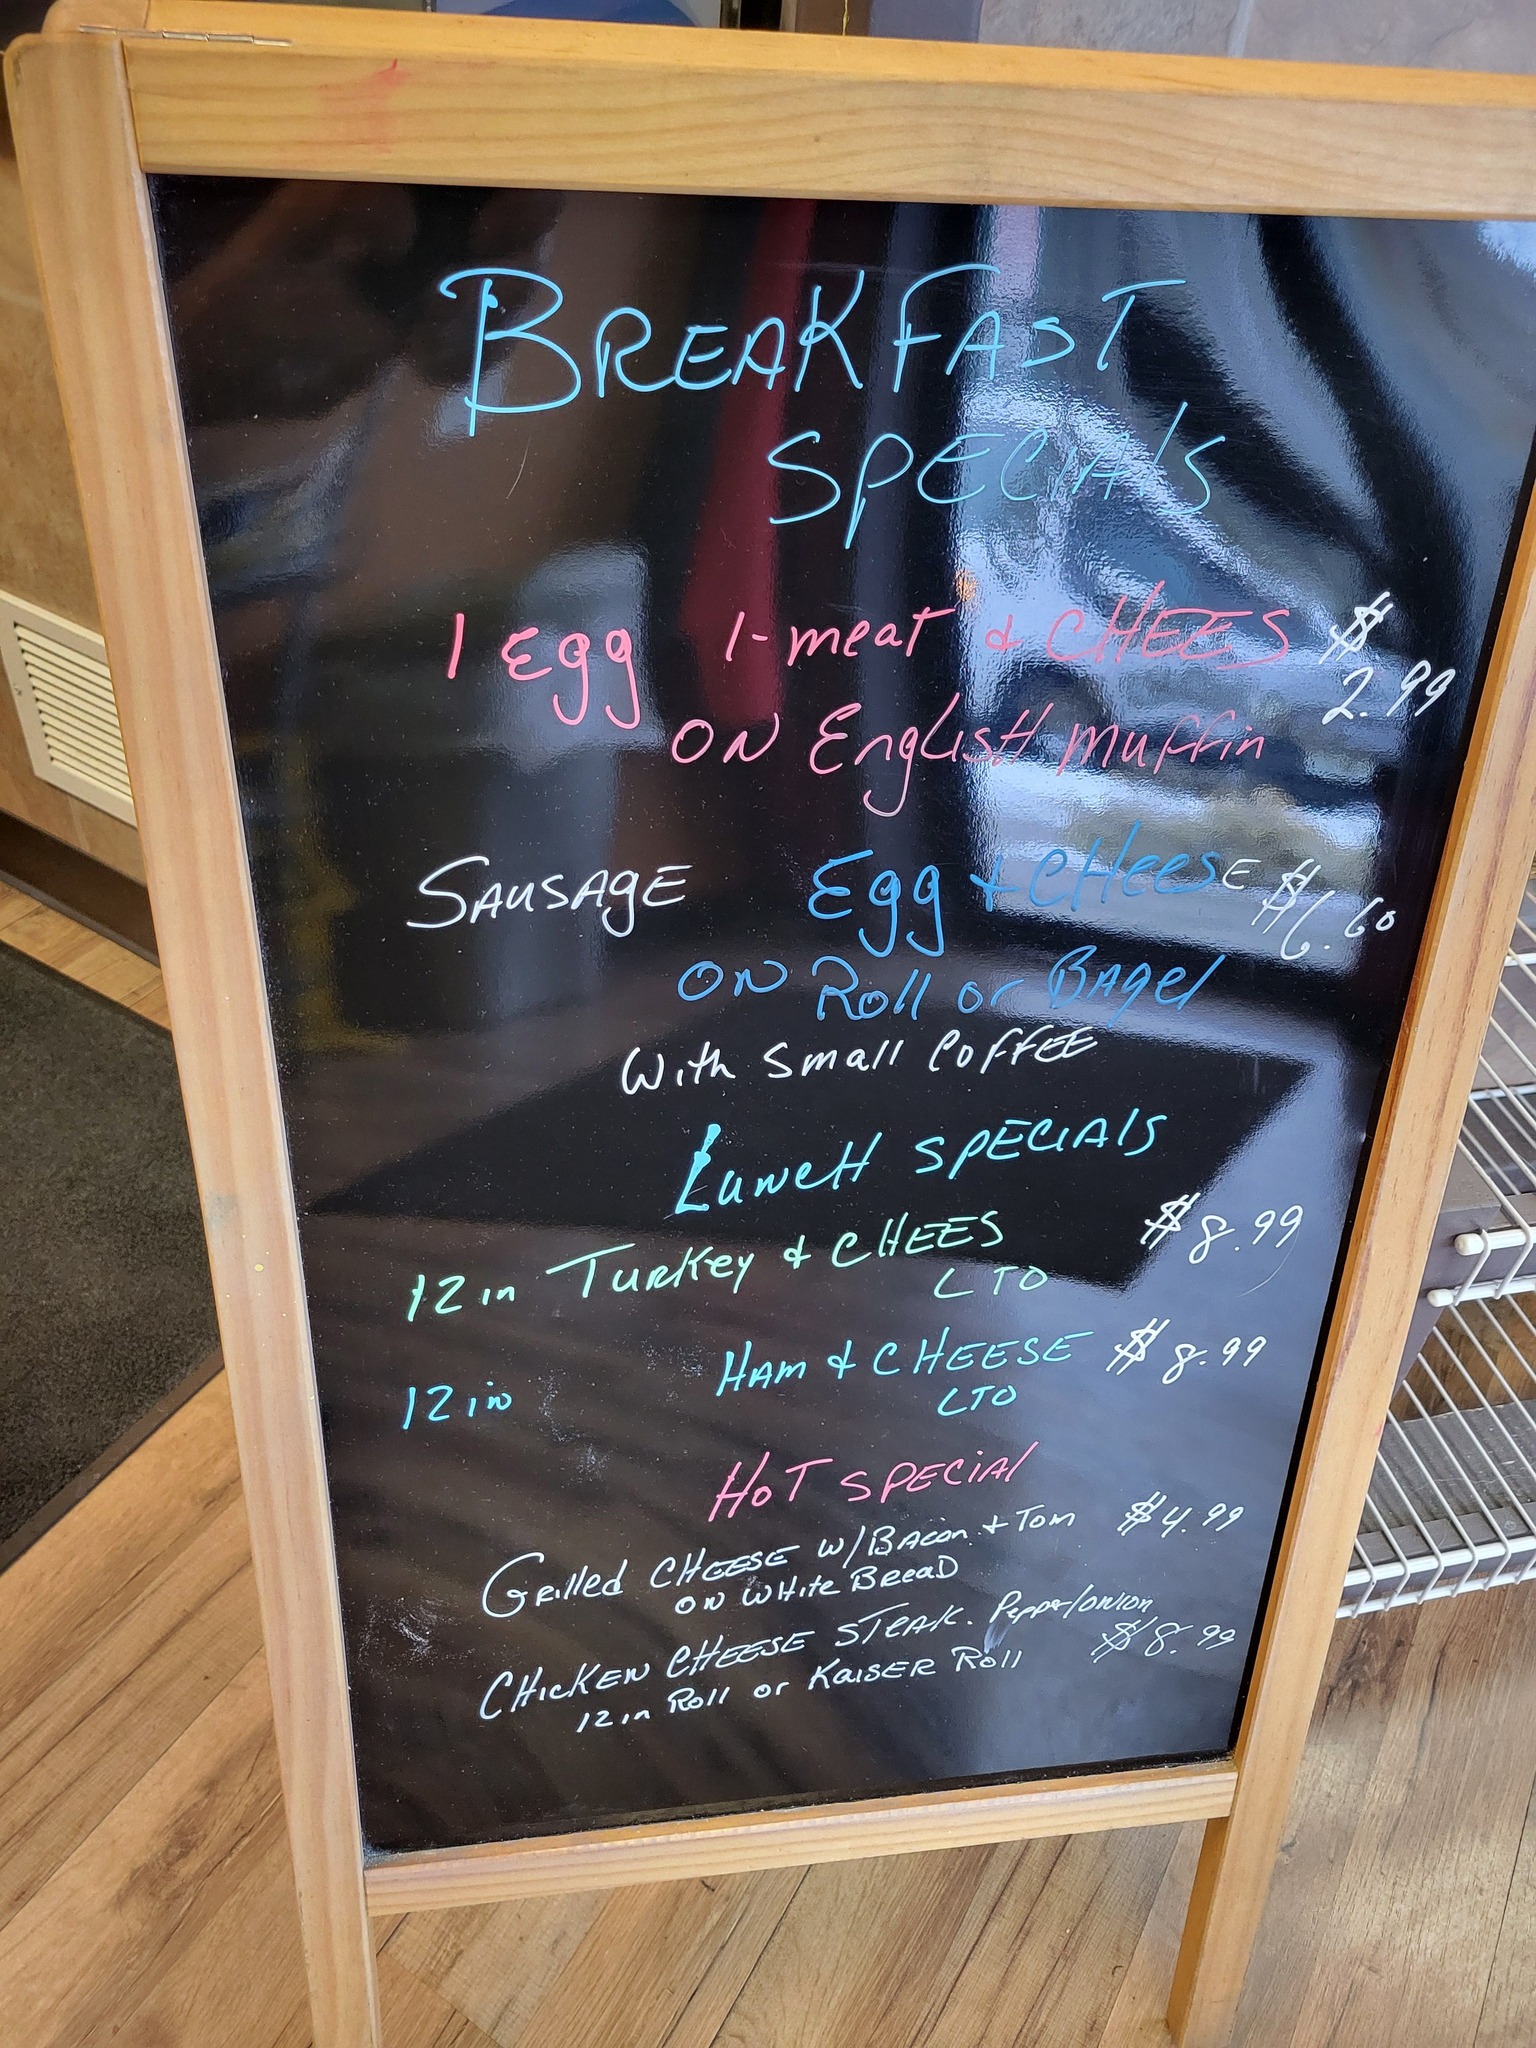 BREAKFAST
SPECIAlS
1 Egg 1-meat & CHEES $
2.99
ON EnglisH muffin
SAUSAGE Egg + CHeese $6.60
ON Roll or Bagel
With small COFFEE
LuncH SPECIAlS
12in Turkey & CHEES $8.99
LTO
12in HAm & CHEESE $8.99
LTO
HoT SPECIAl
Grilled CHEESE w/BAcon + Tom $4.99
ON WHite BreaD
CHicKEN CHEESE STEAK. Pepper/onion
12in Roll or KaiSER Roll $8.99